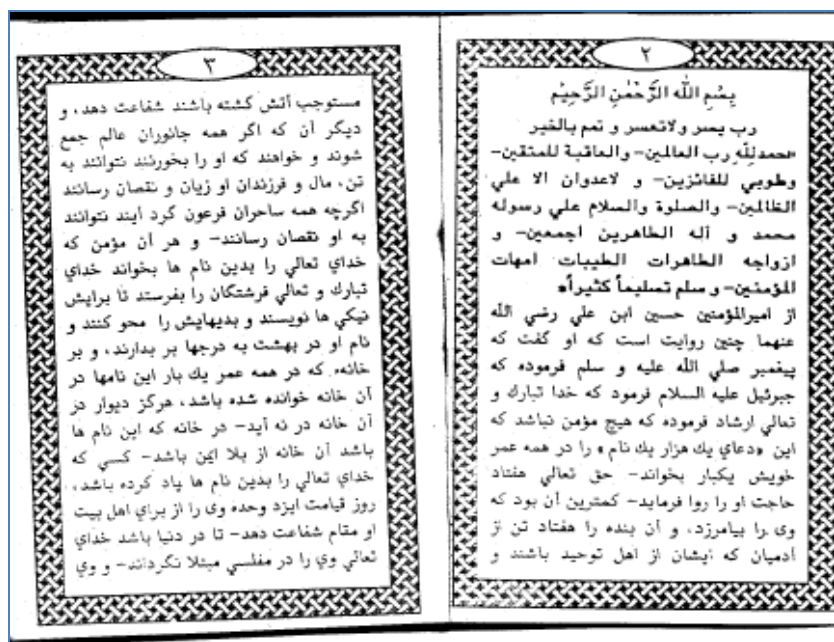 ۲
بِسْمِ اللّٰهِ الرَّحْمٰنِ الرَّحِيْمِ
رب يسر ولاتعسر و تمم بالخير
«حمدلِلّٰهِ رب العالمين– والعاقبة للمتقين–
وطوبي للفائزين– و لاعدوان الا علي
الظالمين– والصلوة والسلام علي رسوله
محمد و آله الطاهرين اجمعين– و
ازواجه الطاهرات الطيبات امهات
المؤمنين– و سلم تسليماً كثيراً»
از اميرالمؤمنين حسين ابن علي رضي الله
عنهما چنين روايت است كه او گفت كه
پيغمبر صلي الله عليه و سلم فرموده كه
جبرئيل عليه السلام فرمود كه خدا تبارك و
تعالي ارشاد فرموده كه هيچ مؤمن نباشد كه
اين «دعاي يك هزار يك نام» را در همه عمر
خويش يكبار بخواند– حق تعالي هفتاد
حاجت او را روا فرمايد– كمترين آن بود كه
وى را بيامرزد، و آن بنده را هفتاد تن از
آدميان كه ايشان از اهل توحيد باشند و
۳
مستوجب آتش گشته باشند شفاعت دهد، و
ديگر آن كه اگر همه جانوران عالم جمع
شوند و خواهند كه او را بخورنند نتوانند به
تن، مال و فرزندان او زيان و نقصان رسانند
اگرچه همه ساحران فرعون گرد آيند نتوانند
به او نقصان رسانند– و هر آن مؤمن كه
خداي تعالي را بدين نام ها بخواند خداي
تبارك و تعالي فرشتگان را بفرستد تا برايش
نيكي ها نويسند و بديهايش را محو كنند و
نام او در بهشت به درجها بر بدارند، و بر
خانه، كه در همه عمر يك بار اين نامها در
آن خانه خوانده شده باشد، هرگز ديوار در
آن خانه در نه آيد– در خانه كه اين نام ها
باشد آن خانه از بلا ايمن باشد– كسي كه
خداي تعالي را بدين نام ها ياد كرده باشد،
روز قيامت ايزد وحده وى را از براي اهل بيت
او مقام شفاعت دهد– تا در دنيا باشد خداي
تعالي وي را در مفلسي مبتلا نگرداند– و وي